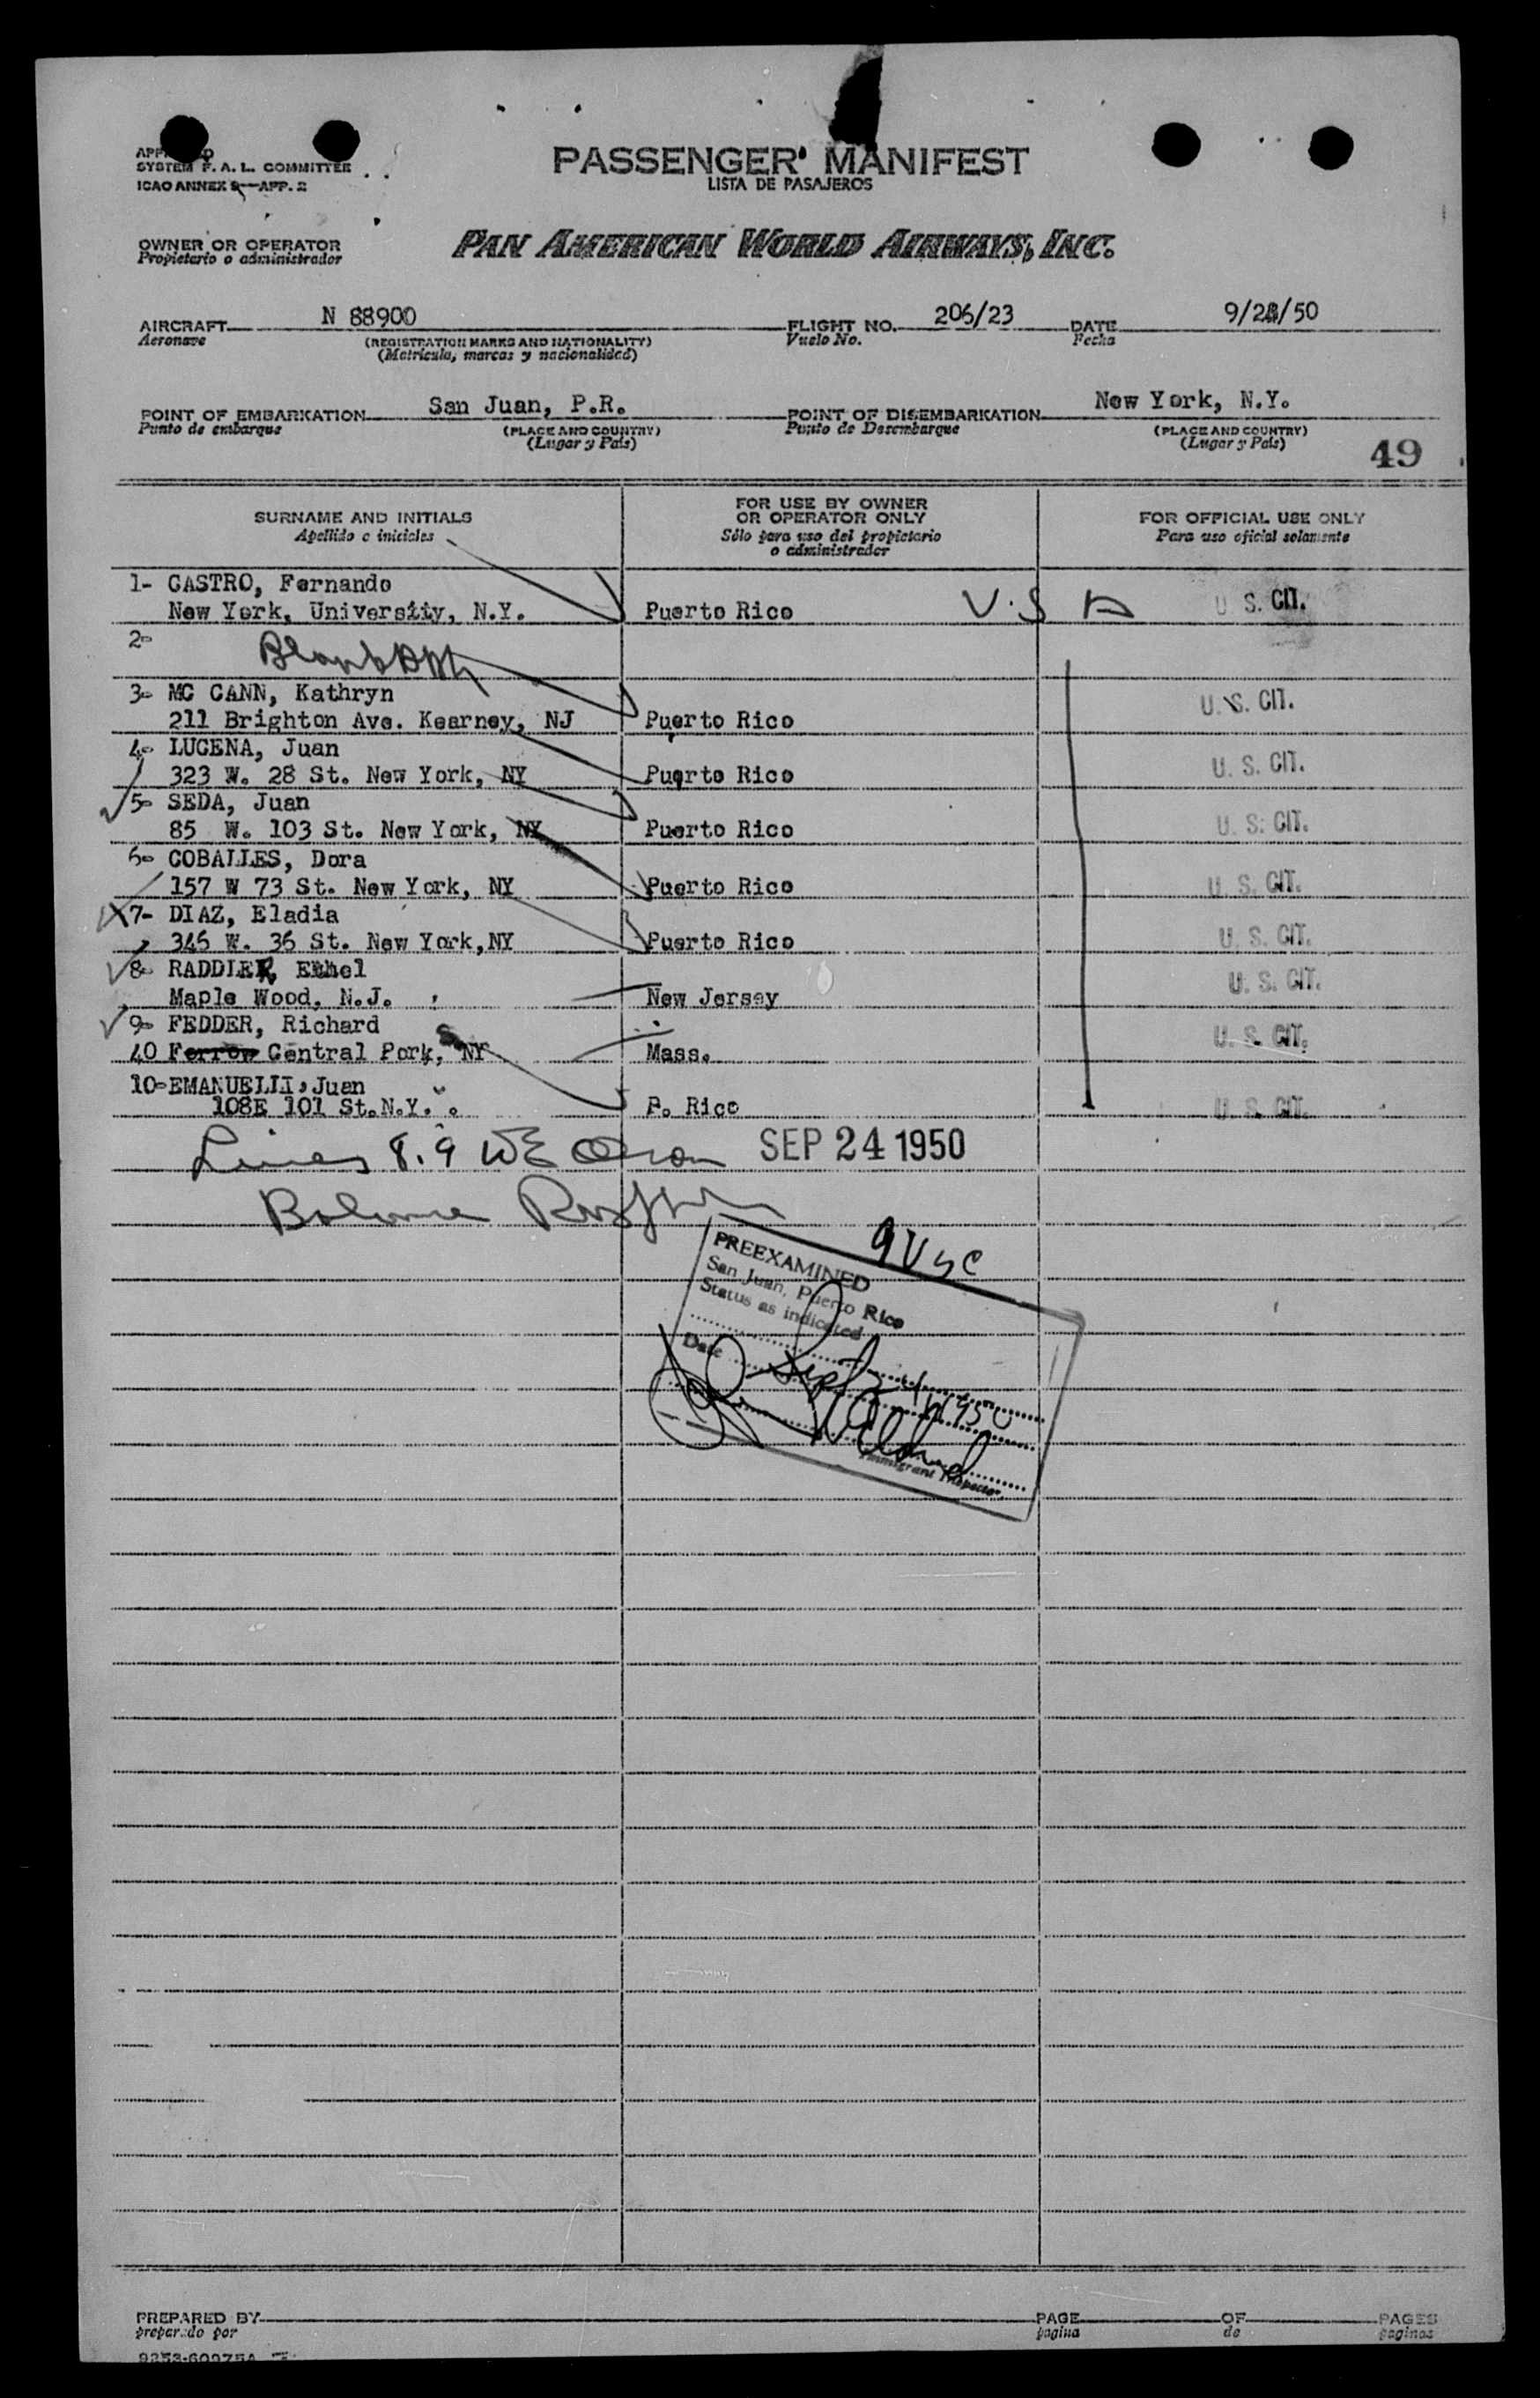 SYSTEM F. A. L. COMMITTEE
ICAO ANNEX 9—APP. 2
PASSENGER MANIFEST
LISTA DE PASAJEROS
OWNER OR OPERATOR
Propietario o administrador
PAN AMERICAN WORLD AIRWAYS, INC.
AIRCRAFT N 88900 FLIGHT NO. 206/23 DATE 9/23/50
Aeronave (REGISTRATION MARKS AND NATIONALITY) Vuelo No. Fecha
(Matricula, marcas y nacionalidad)
POINT OF EMBARKATION San Juan, P.R. POINT OF DISEMBARKATION New York, N.Y.
Punto de embarque (PLACE AND COUNTRY) Punto de Desembarque (PLACE AND COUNTRY)
(Lugar y País) (Lugar y País)
49
SURNAME AND INITIALS FOR USE BY OWNER OR OPERATOR ONLY FOR OFFICIAL USE ONLY
Apellido e iniciales Sólo para uso del propietario o administrador Para uso oficial solamente
1- CASTRO, Fernando
New York, University, N.Y. Puerto Rico U.S A U. S. CIT.
2- Blank
3- MC CANN, Kathryn
211 Brighton Ave. Kearney, NJ Puerto Rico U. S. CIT.
4- LUCENA, Juan
323 W. 28 St. New York, NY Puerto Rico U. S. CIT.
5- SEDA, Juan
85 W. 103 St. New York, NY Puerto Rico U. S. CIT.
6- COBALLES, Dora
157 W 73 St. New York, NY Puerto Rico U. S. CIT.
7- DIAZ, Eladia
346 W. 36 St. New York, NY Puerto Rico U. S. CIT.
8- RADDLER, Ethel
Maple Wood, N.J. New Jersey U. S. CIT.
9- FEDDER, Richard
40 Central Park, S. NY Mass. U. S. CIT.
10- EMANUELLI, Juan
108E 101 St. N.Y. P. Rico U. S. CIT.
Lines 8.9 WE Olson SEP 24 1950
Balance
9 USC
PREEXAMINED
San Juan, Puerto Rico
Status as indicated
Date Sept 24 1950
Immigrant Inspector
PREPARED BY PAGE OF PAGES
preparado por pagina de paginas